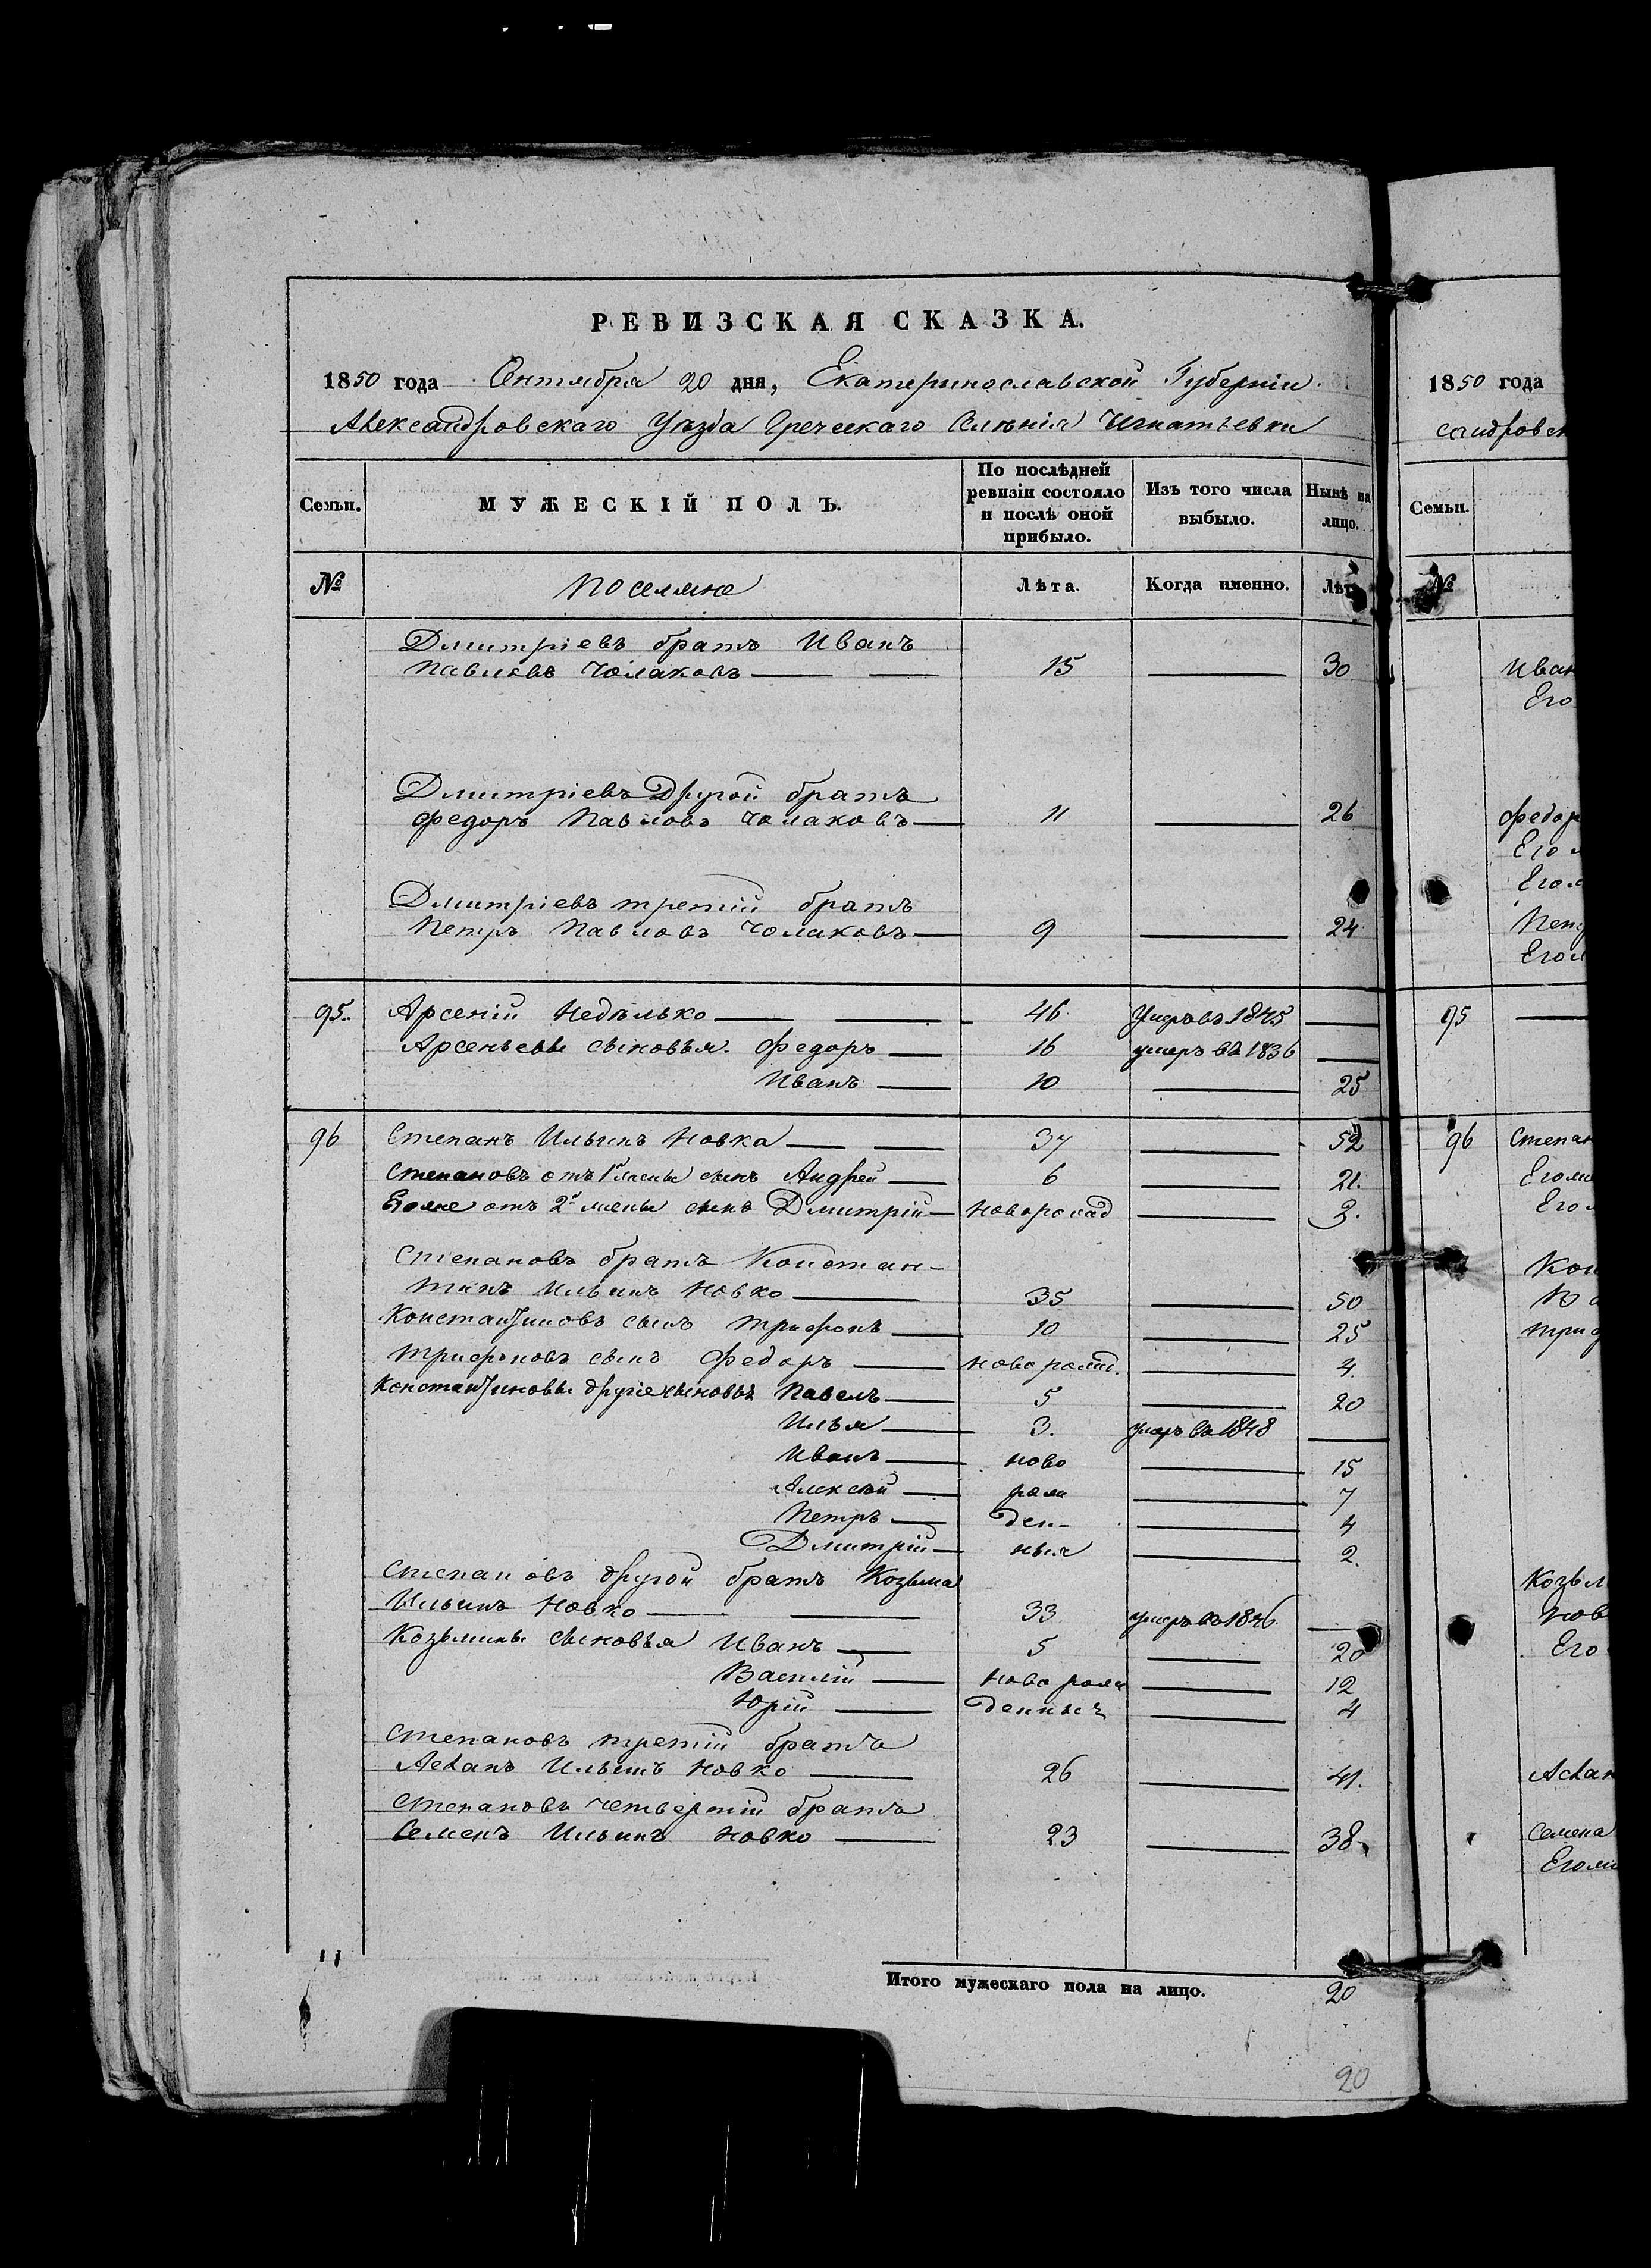 РЕВИЗСКАЯ СКАЗКА.
1850 года Сентября 20 дня, Екатеринославской Губерніи
Александровскаго Уѣзда Греческаго Селѣнія Игнатьевки
Семьи.
МУЖЕСКІЙ ПОЛЪ.
По послѣдней ревизіи состояло и послѣ оной прибыло.
Изъ того числа выбыло.
Нынѣ на лицо.
№ Поселяне Лѣта. Когда именно. Лѣт
Дмитріевъ братъ Иванъ
Павловъ Чолаковъ 15 30
Дмитріевъ Другой братъ
Федоръ Павловъ Чолаковъ 11 26
Дмитріевъ третій братъ
Петръ Павловъ Чолаковъ 9 24
95. Арсеній Недѣлько 46 Умеръ въ 1845
Арсеньевы сыновья Федоръ 16 умеръ въ 1836
Иванъ 10 25
96 Степанъ Ильинъ Новка 37 52
Степановъ отъ 1й жены сынъ Андрей 6 21.
Егоже отъ 2й жены сынъ Дмитрій Оворожд 3.
Степановъ братъ Констан-
тинъ Ильинъ Новко 35 50
Константиновъ сынъ Трифонъ 10 25
Трифоновъ сынъ Федоръ новорожд. 4.
Константиновы другіе сыновья Павелъ 5 20
Илья 3. умеръ въ 1848
Иванъ ново 15
Алексѣй рож 7
Петръ ден- 4
Дмитрій ныя 2.
Степановъ другой братъ Козьма
Ильинъ Новко 33 умеръ въ 1846
Козьмины сыновья Иванъ 5 20
Василій новорож 12
Юрій денныя 4
Степановъ третій братъ
Асланъ Ильинъ Новко 26 41.
Степановъ четвертій братъ
Семенъ Ильинъ Новко 23 38.
Итого мужескаго пола на лицо. 20
20
1850 года
сандровск
Семьи.
№
Иван
Его
Федор
Его
Егож
Петр
Егож
95
96 Степан
Егож
Его
Кон
Нов
Триф
Козьм
Нов
Его
Аслан
Семена
Егож